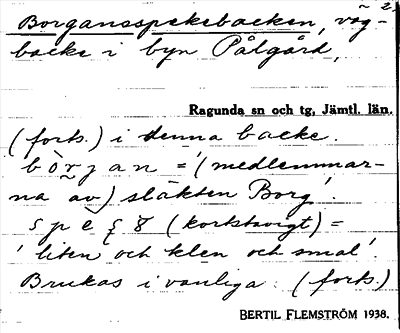 ~ 2.
Borgansspekebacken, väg-
backe i byn Pålgård,
Ragunda sn och tg, Jämtl. län.
(forts.) i denna backe.
bòrjan = '(medlemmar-
na av) släkten Borg'.
(kortstavigt) =
'liten och klen och smal'.
Brukas i vanliga (forts.)
BERTIL FLEMSTRÖM 1938.